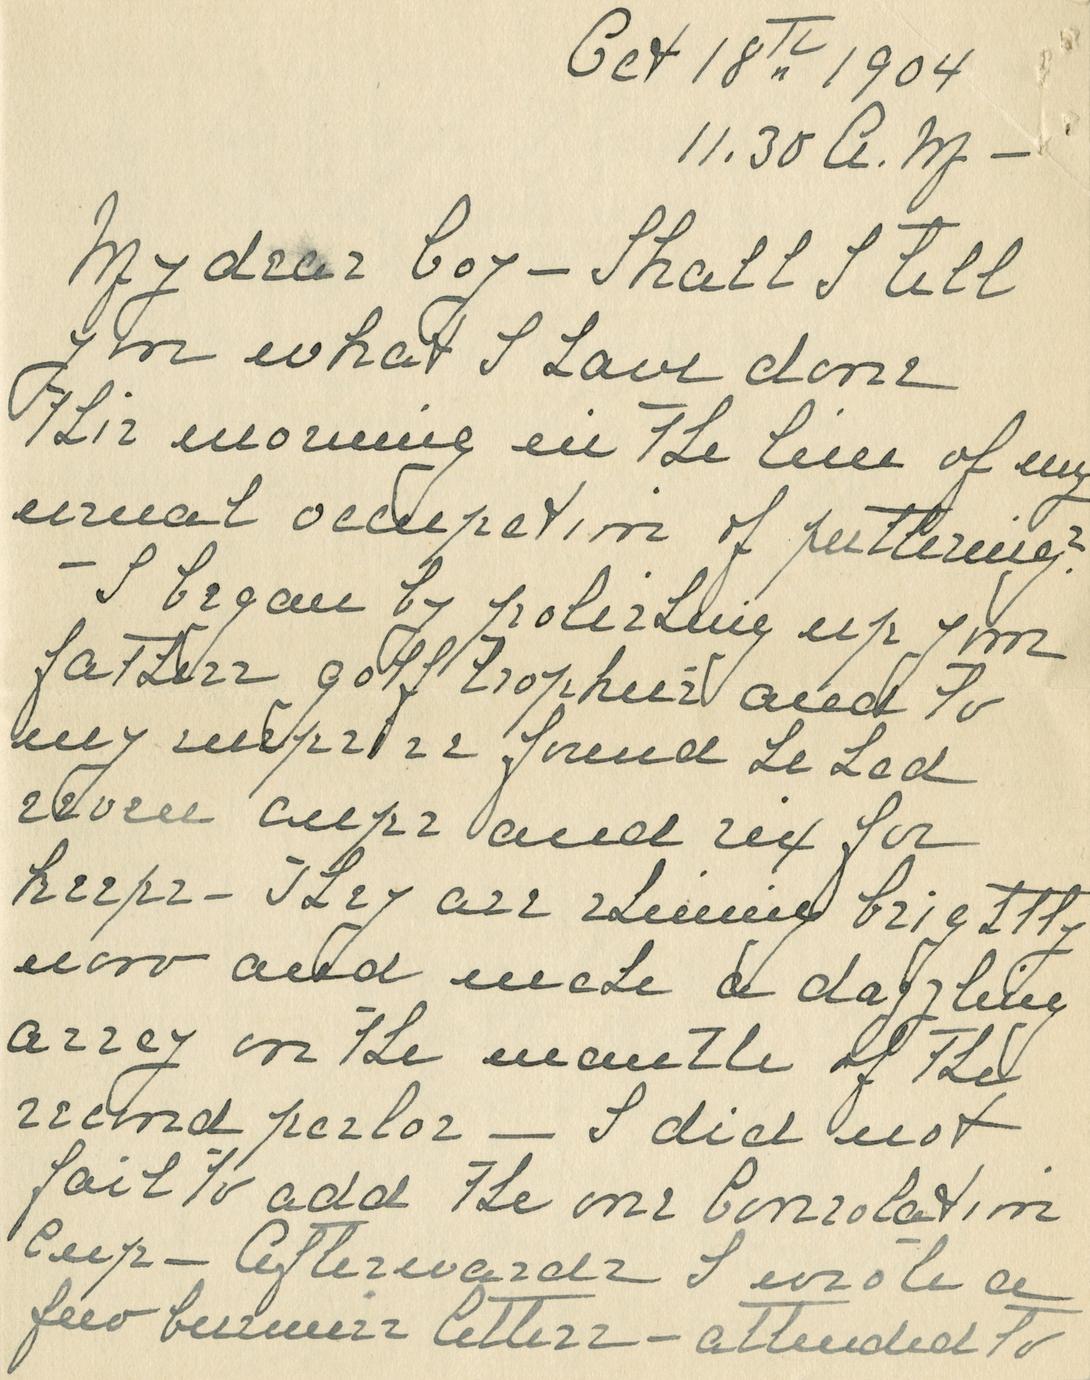 Oct 18th 1904
11.30 A.M -
My dear boy - Shall I tell
you what I have done
this morning in the line of my
usual occupation of puttering?
- I began by polishing up your
fathers golf trophies and to
my surprise found he had
seven cups and six for
keeps - They are shining brightly
now and make a dazzling
array on the mantle of the
second parlor - I did not
fail to add the one Consolation
Cup - Afterwards I wrote a
few business letters - attended to